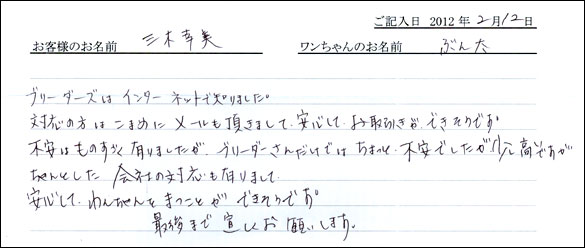 ご記入日 2012年2月12日
お客様のお名前 三木幸美 ワンちゃんのお名前 ぶん太
ブリーダーズはインターネットで知りました。
対応の方はこまめにメールも頂きまして、安心してお取引きができそうです。
不安はものすごく有りましたが、ブリーダーさんだけではちょっと不安でしたが少し高ですが
ちゃんとした会社の対応も有りまして、
安心してわんちゃんをまつことができそうです。
最後まで宜しくお願いします。